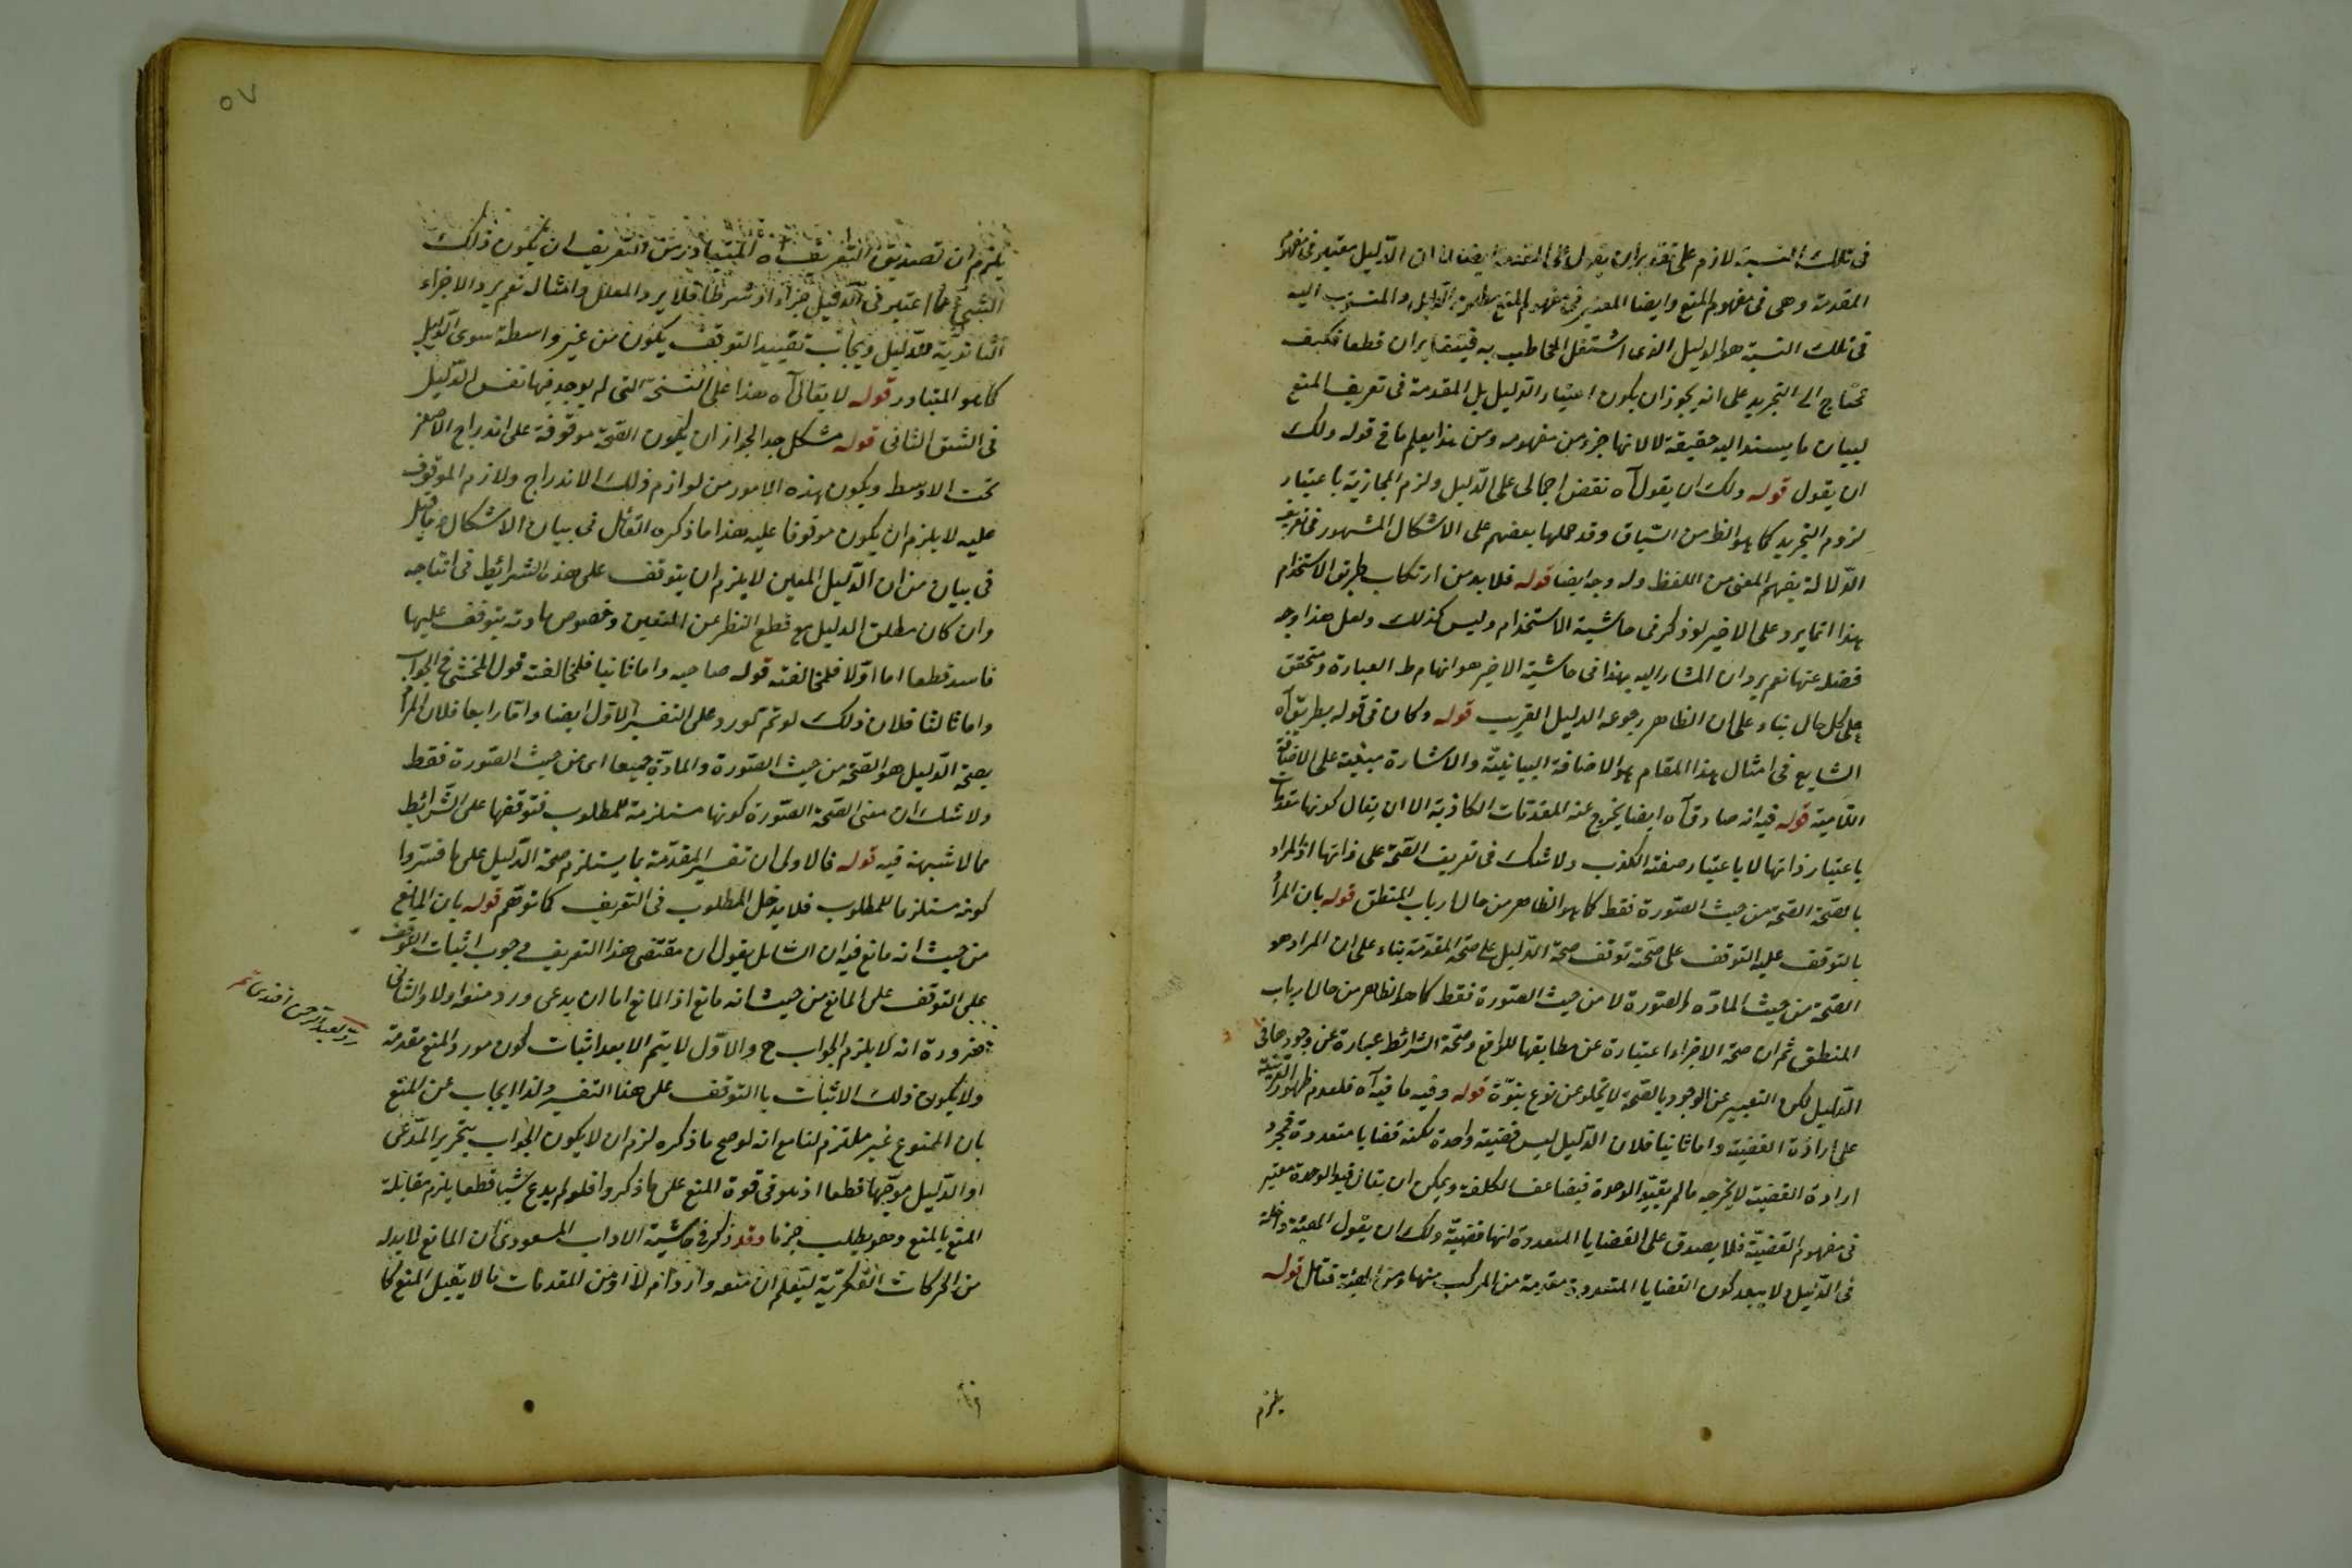 في تلك النسبة لازم على تقدير ان يقول على المقدمة ايضا اذ ان الدليل معتبر في مفهوم
المقدمة وهي في مفهوم المنع وايضا المعتبر في مفهوم المنع مطلق الدليل والمنسوب اليه
في تلك النسبة هو الدليل الذى اشتغل المخاطب به فيتغايران قطعا فكيف
تحتاج الى التجريد على انه يجوز ان يكون اعتبار الدليل بل المقدمة في تعريف المنع
لبيان ما يستند اليه حقيقة لا لانها جزء من مفهومه ومن هذا يعلم ما في قوله ولك
ان يقول قوله ولك ان يقول آه نقض اجمالى على الدليل ولزم المجازية باعتبار
لزوم التجريد كما هو الظ من السياق وقد حملها بعضهم على الاشكال المشهور في تعريف
الدلالة بفهم المعنى من اللفظ وله وجه ايضا قوله فلا بد من ارتكاب طريق الاستخدام
هذا انما يرد على الاخير لو ذكر في حاشية الاستخدام وليس كذلك ولعل هذا وجه
فصله عنها نعم يرد ان المشار اليه بهذا في حاشية الاخير هو انهام ط العبارة ومتحقق
على كل حال بناء على ان الظاهر رجوعه الدليل القريب قوله وكان في قوله بطريق آه
الشايع في امثال هذا المقام هو الاضافة البيانية والاشارة مبنية على الاضافة
اللامية قوله فيه انه صادق آه ايضا يخرج عنه المقدمات الكاذبة الا ان يقال كونها مقدمات
باعتبار ذاتها لا باعتبار صفته الكذب ولا شك في تعريف الصحة على ذاتها اذ المراد
بالصحة الصحة من حيث الصورة فقط كما هو الظاهر من حال ارباب المنطق قوله بان المرا
بالتوقف عليه التوقف على صحته توقف صحة الدليل على صحة المقدمة بناء على ان المراد هو
الصحة من حيث المادة والصورة لا من حيث الصورة فقط كما هو الظاهر من حال ارباب
المنطق ثم ان صحة الاجزاء اعتبارة عن مطابقتها للواقع وصحة الشرائط عبارة عن وجودها في
الدليل لكن التعبير عن الوجود بالصحة لا يخلو عن نوع نبوّة قوله وفيه ما فيه آه فلعدم ظهور القرينة
على ارادة القضية واما ثانيا فلان الدليل ليس قضية واحدة لكنه قضايا متعددة فمجرد
ارادة القضية لا يخرجه ما لم يقيد الوحدة فيضاعف الكلفة ويمكن ان يقال قيد الوحدة معتبر
في مفهوم القضية فلا يصدق على القضايا المتعددة انها قضية ولك ان يقول الهيئة داخلة
في الدليل ولا يبعد كون القضايا المتعددة مقدمة من المركب منها ومن الهيئة فتأمل قوله
يلزم
٥٧
يلزم ان تصديق التعريف آه المتبادر من التعريف ان يكون ذلك
الشئ مما اعتبر في الدليل جزءا او شرطا فلا يرد المعلل وامثاله نعم يرد الاجزاء
الثانوية للدليل ويجاب بتقييد التوقف يكون من غير واسطة سوى الدليل
كما هو المتبادر قوله لا يقال آه هذا على النسخة التى لم يوجد فيها نفس الدليل
في الشق الثاني قوله مشكل جدا لجواز ان يكون الصحة موقوفة على اندراج الاصغر
تحت الاوسط ويكون هذه الامور من لوازم ذلك الاندراج ولازم الموقوف
عليه لا يلزم ان يكون موقوفا عليه هذا ما ذكره القائل في بيان الاشكال وما قيل
في بيان من ان الدليل المعين لا يلزم ان يتوقف على هذه الشرائط في انتاجه
وان كان مطلق الدليل مع قطع النظر عن التعين وخصوص مادته يتوقف عليها
فاسد قطعا اما اولا فلمخالفته قوله صاحبه واما ثانيا فلمخالفته قول المحشي في الجواب
واما ثالثا فلان ذلك لو تم لورد على التفسير الاول ايضا واما رابعا فلان المرا
بصحة الدليل هو الصحة من حيث الصورة والمادة جميعا اى من حيث الصورة فقط
ولا شك ان معنى الصحة الصورة كونها مستلزمة للمطلوب فتوقفها على الشرائط
مما لا شبهة فيه قوله فالاولى ان تفسير المقدمة بما يستلزم صحة الدليل على ما فسروا
كونه مستلزما للمطلوب فلا يدخل المطلوب في التعريف كما توهم قوله بان المانع
من حيث انه مانع فيه ان السائل يقول ان مقتضى هذا التعريف وجوب اثبات التوقف
على التوقف على المانع من حيث انه مانع اذ المانع اما ان يدعى ورود منعه اولا والثاني
ضرورة انه لا يلزم الجواب ح والاول لا يتم الا بعد اثبات كون مورد المنع مقدمة
ولا يكون ذلك الاثبات بالتوقف على هذا التفسير ولذا ايجاب عن المنع
بان الممنوع غير ملتزم لنا مع انه لو صح ما ذكره لزم ان لا يكون الجواب بتحرير المدعى
او الدليل موجها قطعا اذ هو في قوة المنع على ما ذكروا فلو لم يدع شيئا قطعا يلزم مقابلة
المنع بالمنع وهو يطلب جزما وقد ذكر في حاشية الاداب المسعودى ان المانع لا بد له
من الحركات الفكرية ليعلم ان منعه وارد ام لا او من المقدمات ما لا يقبل المنع كما
رد لعبد الرحمن افندى